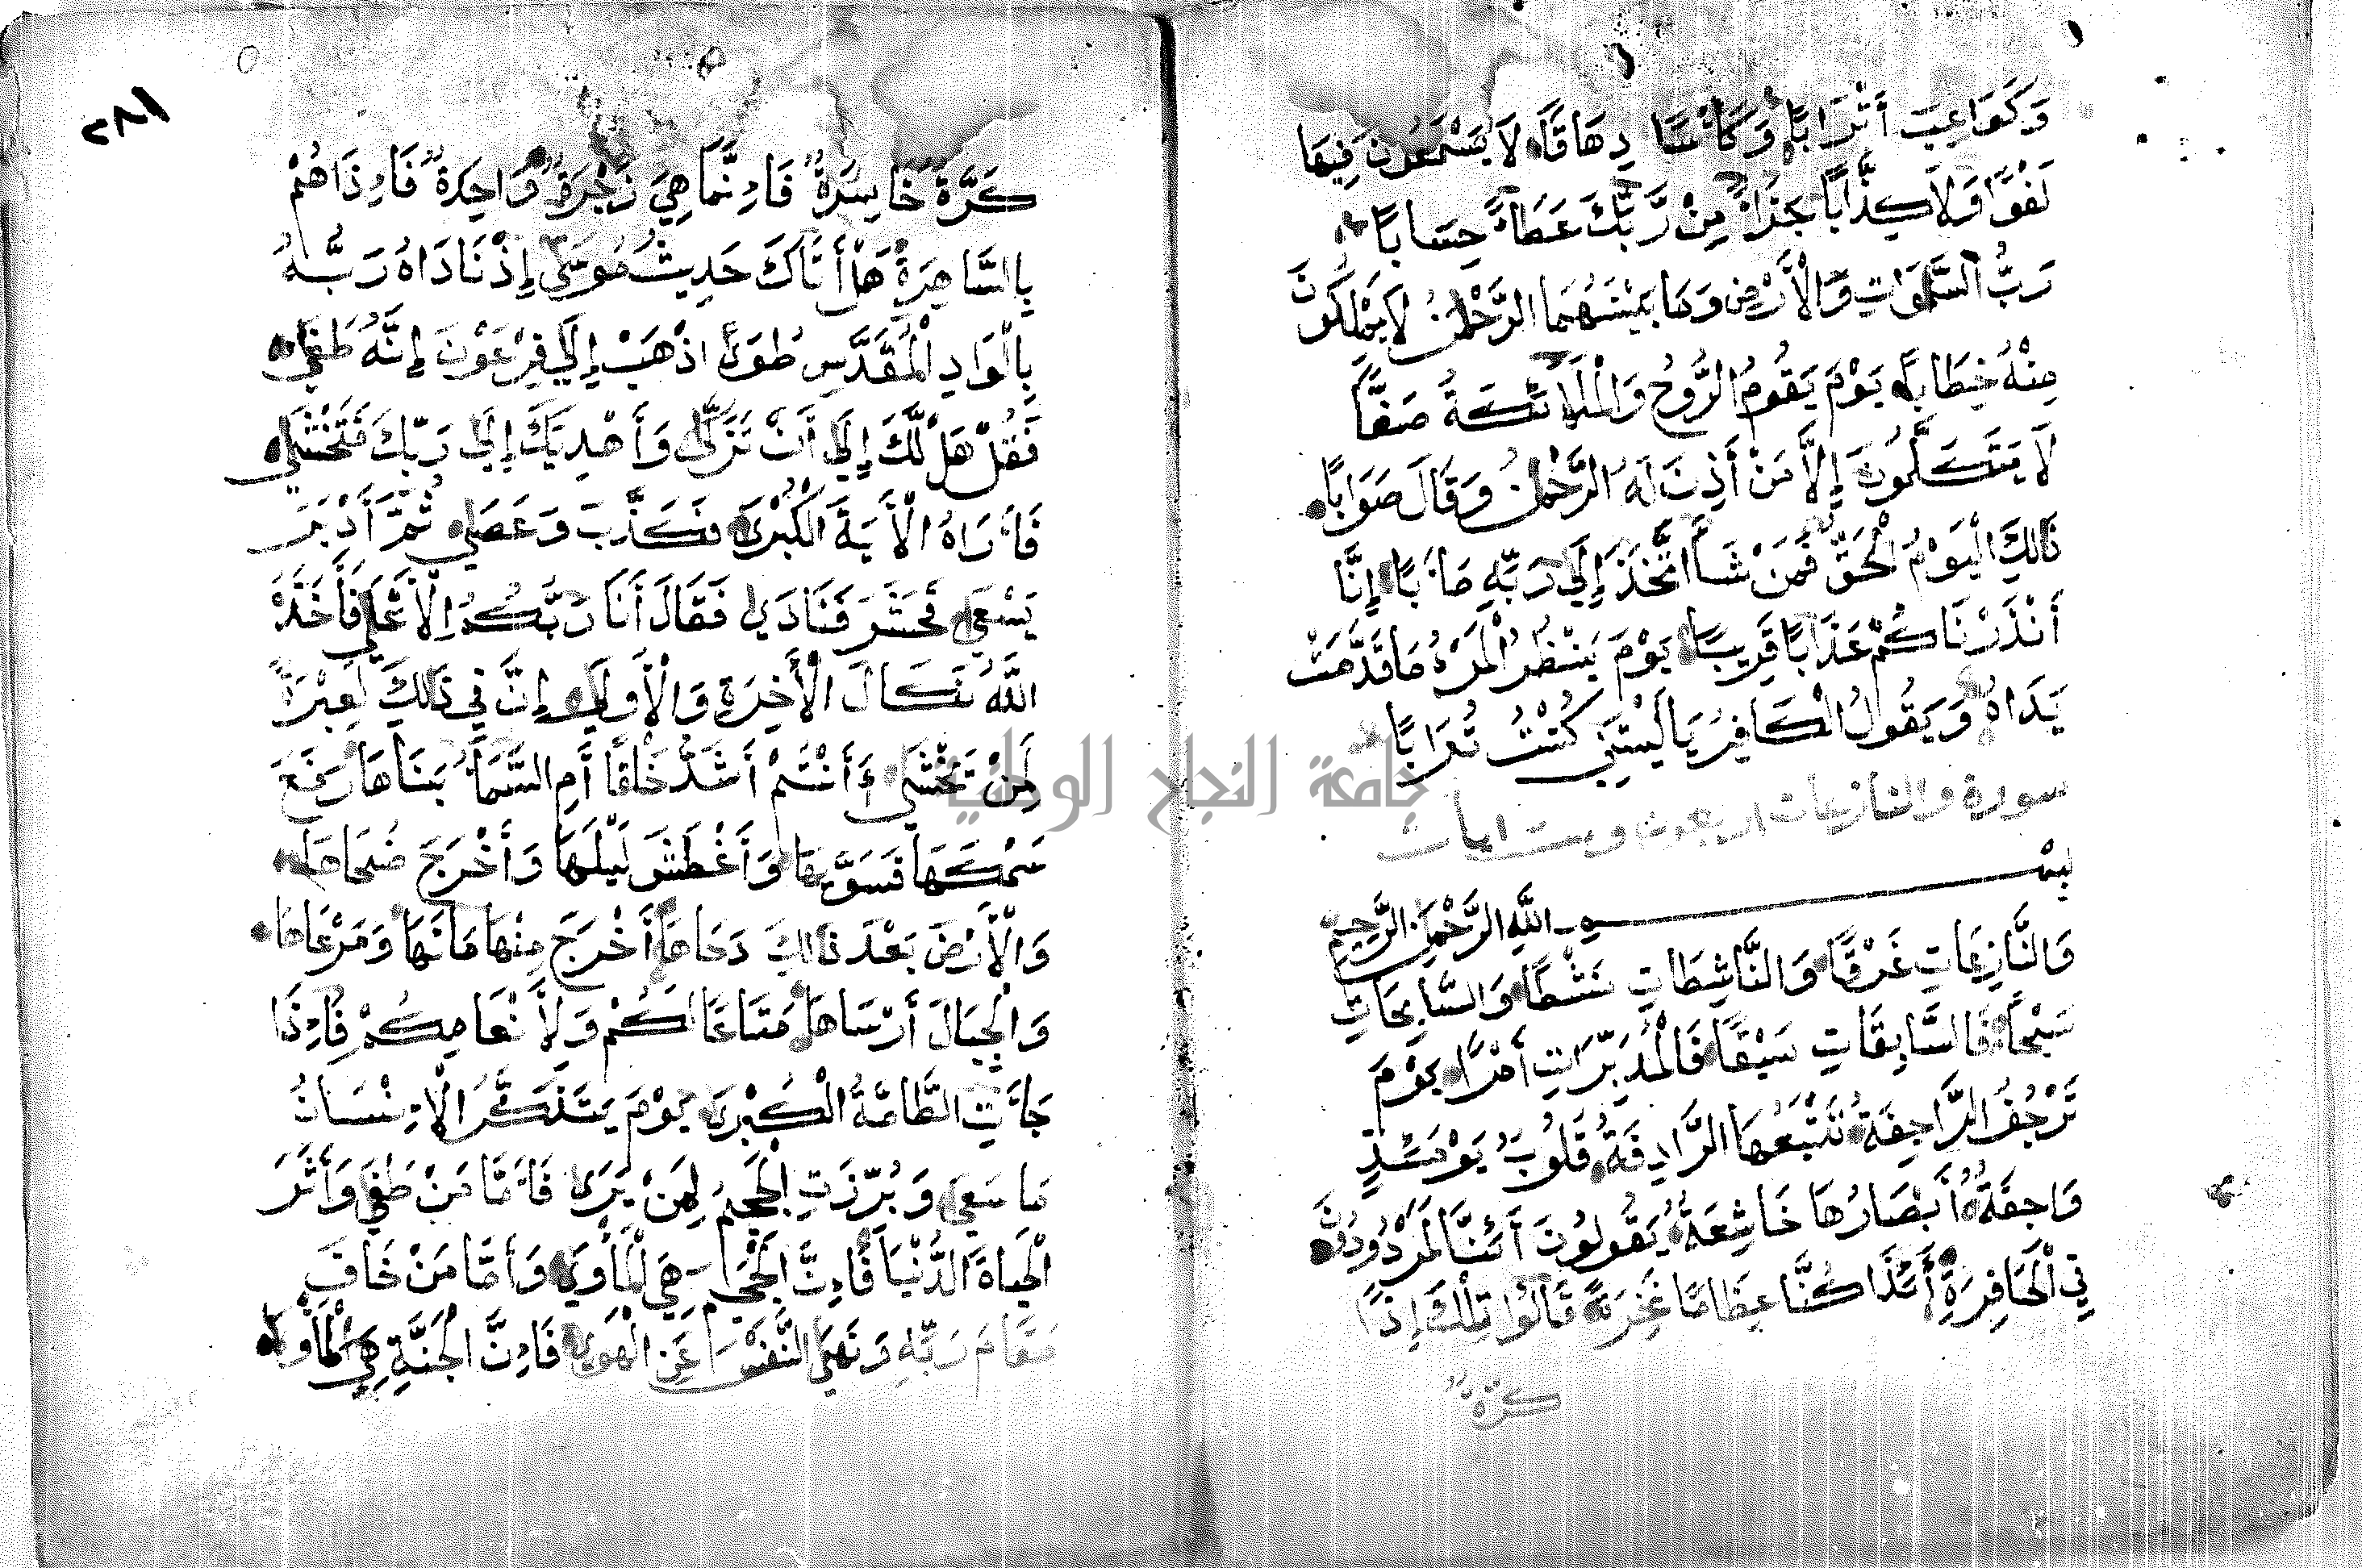 وَكَوَاعِبَ أَتْرَابًا وَكَأْسًا دِهَاقًا لَا يَسْمَعُونَ فِيهَا
لَغْوًا وَلَا كِذَّابًا جَزَاءً مِنْ رَّبِّكَ عَطَاءً حِسَابًا
رَبُّ السَّمَوَاتِ وَالْأَرْضِ وَمَا بَيْنَهُمَا الرَّحْمَٰنُ لَا يَمْلِكُونَ
مِنْهُ خِطَابًا يَوْمَ يَقُومُ الرُّوحُ وَالْمَلَائِكَةُ صَفًّا
لَا يَتَكَلَّمُونَ إِلَّا مَنْ أَذِنَ لَهُ الرَّحْمَٰنُ وَقَالَ صَوَابًا
ذَالِكَ الْيَوْمُ الْحَقُّ فَمَنْ شَاءَ اتَّخَذَ إِلَىٰ رَبِّهِ مَآبًا إِنَّا
أَنْذَرْنَاكُمْ عَذَابًا قَرِيبًا يَوْمَ يَنْظُرُ الْمَرْءُ مَا قَدَّمَتْ
يَدَاهُ وَيَقُولُ الْكَافِرُ يَالَيْتَنِي كُنْتُ تُرَابًا
سورة والنازعات اربعون وست ايات
بِسْمِ اللَّهِ الرَّحْمَٰنِ الرَّحِيمِ
وَالنَّازِعَاتِ غَرْقًا وَالنَّاشِطَاتِ نَشْطًا وَالسَّابِحَاتِ
سَبْحًا فَالسَّابِقَاتِ سَبْقًا فَالْمُدَبِّرَاتِ أَمْرًا يَوْمَ
تَرْجُفُ الرَّاجِفَةُ تَتْبَعُهَا الرَّادِفَةُ قُلُوبٌ يَوْمَئِذٍ
وَاجِفَةٌ أَبْصَارُهَا خَاشِعَةٌ يَقُولُونَ أَئِنَّا لَمَرْدُودُونَ
فِي الْحَافِرَةِ أَئِذَا كُنَّا عِظَامًا نَّخِرَةً قَالُوا تِلْكَ إِذًا
كَرَّةٌ
٢٨١
كَرَّةٌ خَاسِرَةٌ فَإِنَّمَا هِيَ زَجْرَةٌ وَاحِدَةٌ فَإِذَا هُمْ
بِالسَّاهِرَةِ هَلْ أَتَاكَ حَدِيثُ مُوسَىٰ إِذْ نَادَاهُ رَبُّهُ
بِالْوَادِ الْمُقَدَّسِ طُوًى اذْهَبْ إِلَىٰ فِرْعَوْنَ إِنَّهُ طَغَىٰ
فَقُلْ هَلْ لَّكَ إِلَىٰ أَنْ تَزَكَّىٰ وَأَهْدِيَكَ إِلَىٰ رَبِّكَ فَتَخْشَىٰ
فَأَرَاهُ الْأَيَةَ الْكُبْرَىٰ فَكَذَّبَ وَعَصَىٰ ثُمَّ أَدْبَرَ
يَسْعَىٰ فَحَشَرَ فَنَادَىٰ فَقَالَ أَنَا رَبُّكُمُ الْأَعْلَىٰ فَأَخَذَهُ
اللَّهُ نَكَالَ الْأَخِرَةِ وَالْأُولَىٰ إِنَّ فِي ذَالِكَ لَعِبْرَةً
لِّمَنْ يَخْشَىٰ ءَأَنْتُمْ أَشَدُّ خَلْقًا أَمِ السَّمَاءُ بَنَاهَا رَفَعَ
سَمْكَهَا فَسَوَّيهَا وَأَغْطَشَ لَيْلَهَا وَأَخْرَجَ ضُحَاهَا
وَالْأَرْضَ بَعْدَ ذَالِكَ دَحَاهَا أَخْرَجَ مِنْهَا مَاءَهَا وَمَرْعَاهَا
وَالْجِبَالَ أَرْسَاهَا مَتَاعًا لَكُمْ وَلِأَنْعَامِكُمْ فَإِذَا
جَاءَتِ الطَّامَّةُ الْكُبْرَىٰ يَوْمَ يَتَذَكَّرُ الْإِنْسَانُ
مَا سَعَىٰ وَبُرِّزَتِ الْجَحِيمُ لِمَنْ يَرَىٰ فَأَمَّا مَنْ طَغَىٰ وَأَثَرَ
الْحَيَاةَ الدُّنْيَا فَإِنَّ الْجَحِيمَ هِيَ الْمَأْوَىٰ وَأَمَّا مَنْ خَافَ
مَقَامَ رَبِّهِ وَنَهَى النَّفْسَ عَنِ الْهَوَىٰ فَإِنَّ الْجَنَّةَ هِيَ الْمَأْوَىٰ
جامعة النجاح الوطنية